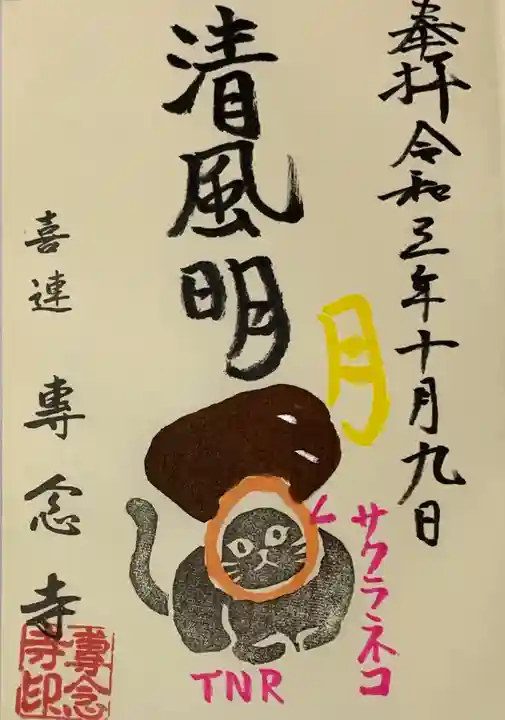 奉拝 令和三年十月九日
清風明
月
サクラネコ
TNR
喜連 専念寺
専念
寺印